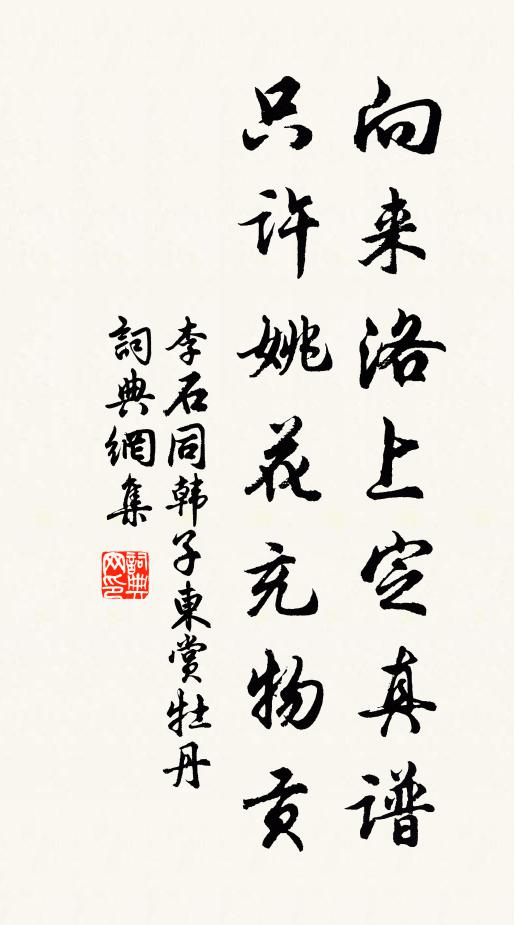 向来洛上定真谱
只许姚花充物贡
李石同韩子東赏牡丹
詞典網集
詞典网印